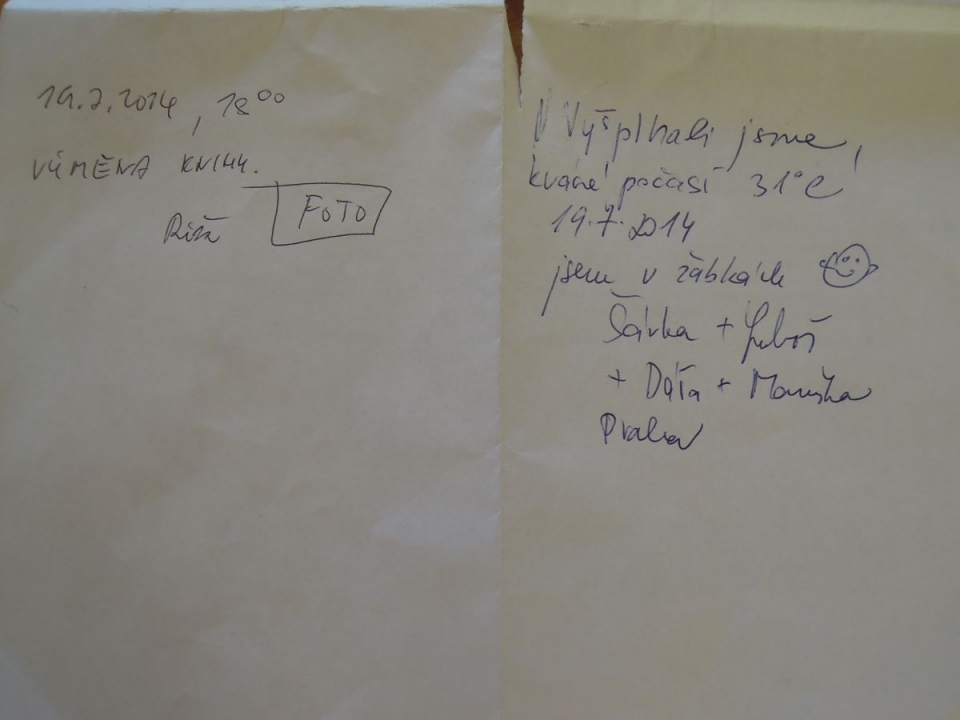 19.7.2014, 18⁰⁰
VÝMĚNA KNIHY.
FOTO
Vyšplhali jsme,
krásné počasí 31°C
19.7.2014
jsem v žábkách
Šárka + Luboš
+ Dáša + Maruška
Praha